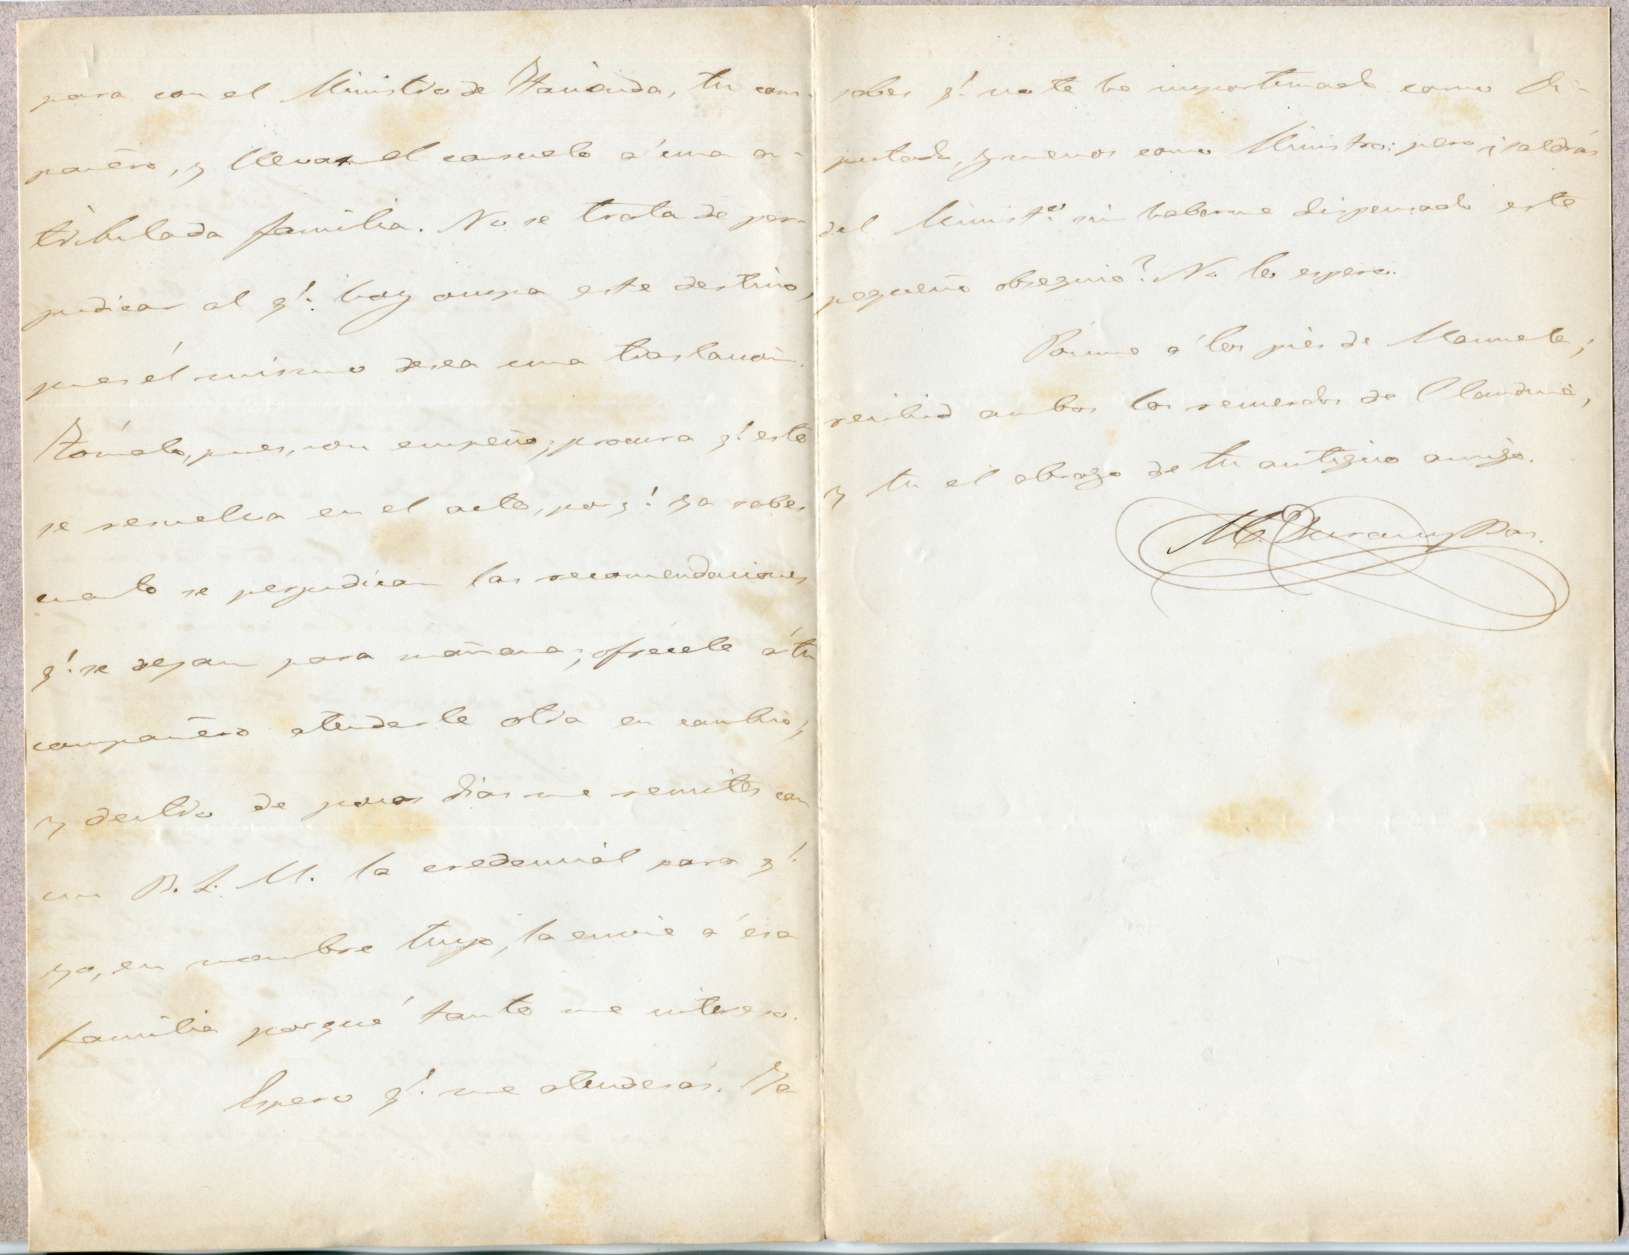 para con el Ministro de Hacienda, tu com-
pañero, y llevar el consuelo á una a-
tribulada familia. No se trata de per-
judicar al q.! hoy ocupa este destino,
pues él mismo desea una traslacion.
Tómalo, pues, con empeño; procura q.! esto
se resuelva en el acto, por q.! ya sabes
cuanto se perjudican las recomendaciones
q.! se dejan para mañana; ofrécele á tu
compañero atenderle otra en cambio,
y dentro de pocos dias me remites con
un B. L. M. la credencial para q.!
yo, en nombre tuyo, la envie á esa
familia porqué tanto me intereso.
Espero q.! me atenderás. Ya
sabes q.! no te he importunado como Di-
putado, y menos como Ministro: pero ¿saldrás
del Minist.o sin haberme dispensado este
pequeño obsequio? No lo espero.
Pónme á los piés de Manuela;
recibid ambos los recuerdos de Claudina,
y tu el abrazo de tu antiguo amigo.
M. Duran y Bas.